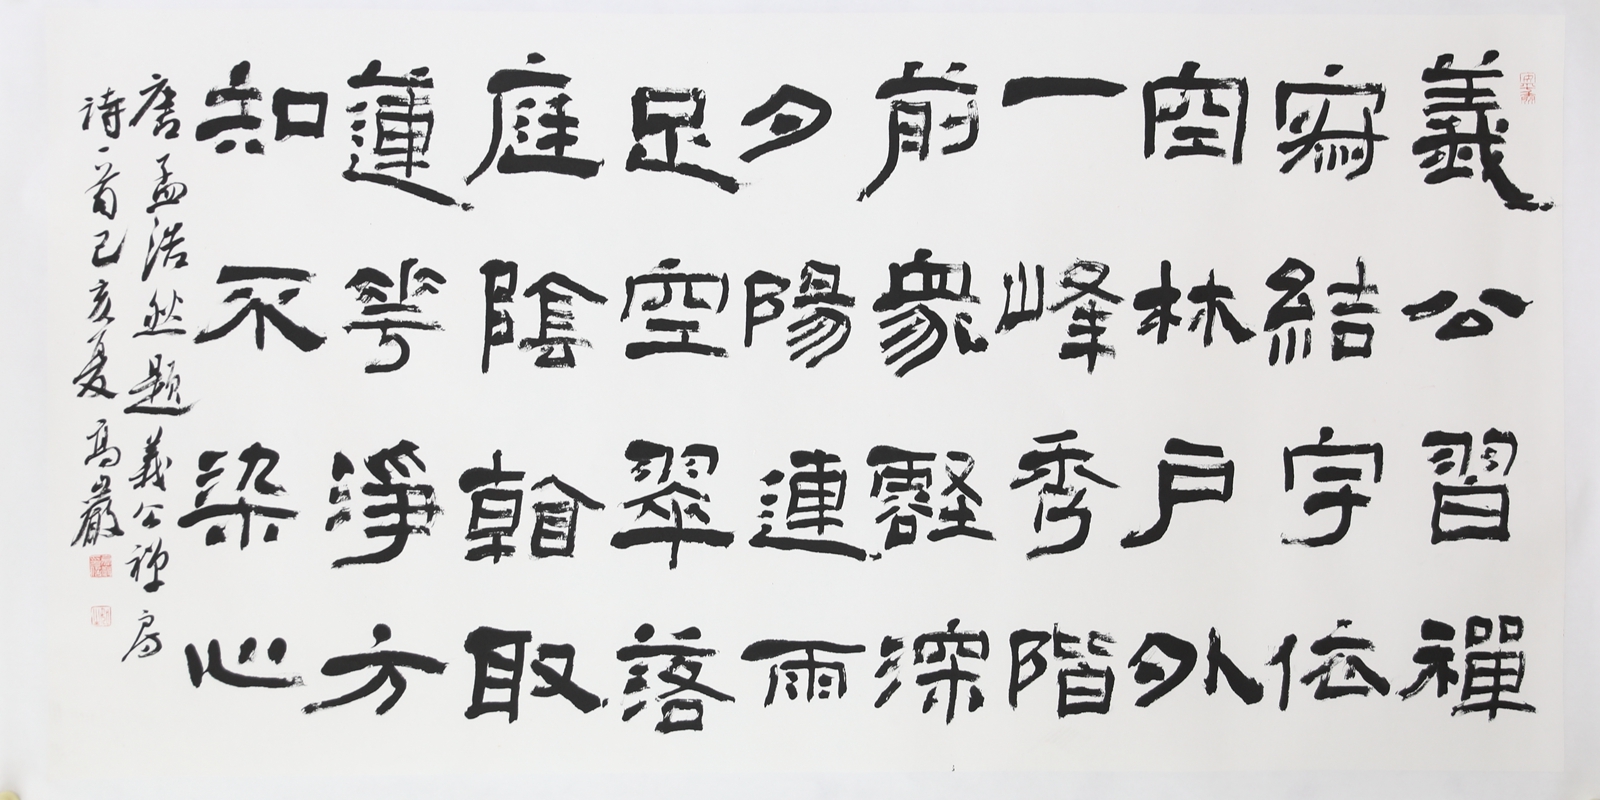 義公習禪
寂結宇依
空林戶外
一峰秀階
前衆壑深
夕陽連雨
足空翠落
庭陰看取
蓮花淨方
知不染心
唐孟浩然題義公禪房
詩一首己亥夏高巖